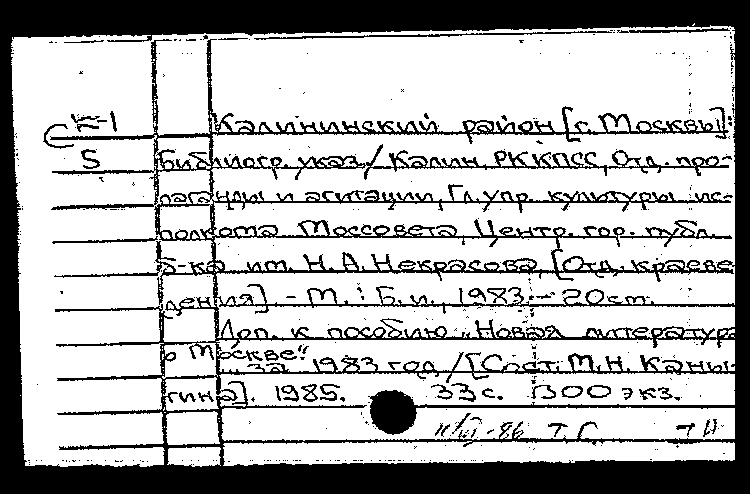 К-1
Калининский район [г. Москвы]:
5 библиогр. указ./ Калин. РК КПСС, Отд. про-
паганды и агитации, Гл. упр. культуры ис-
полкома Моссовета, Центр. гор. публ.
б-ка им. Н. А. Некрасова, [Отд. краеве-
дения]. - М. : Б. и., 1983. - 20 cm.
Доп. к пособию „Новая литература
о Москве"
... за 1983 год /[Сост. М.Н. Каны-
гина]. 1985. 33 с. 1300 экз.
-86 Т. С.